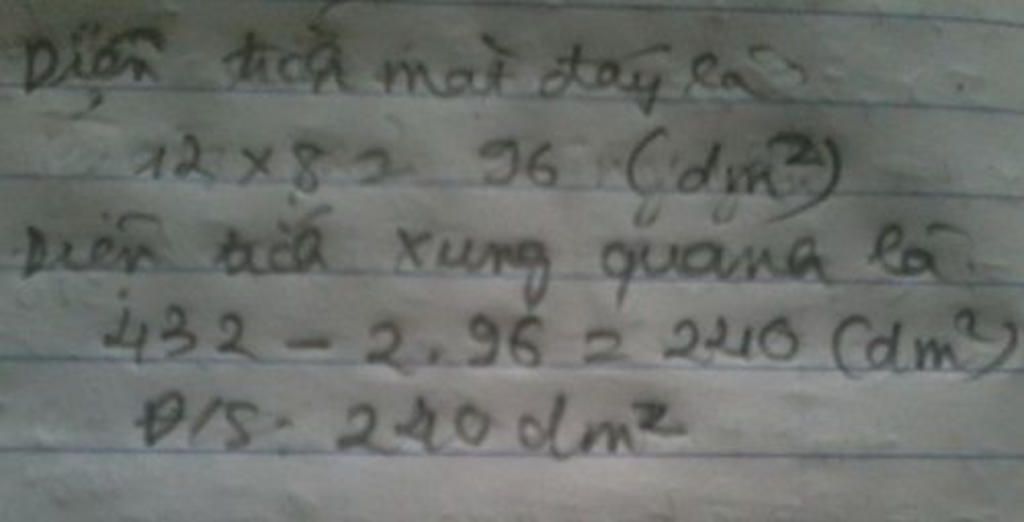 Diện tích mặt đáy là
12 × 8 = 96 (dm²)
Diện tích xung quanh là
432 - 2.96 = 240 (dm²)
Đ/S: 240 dm²